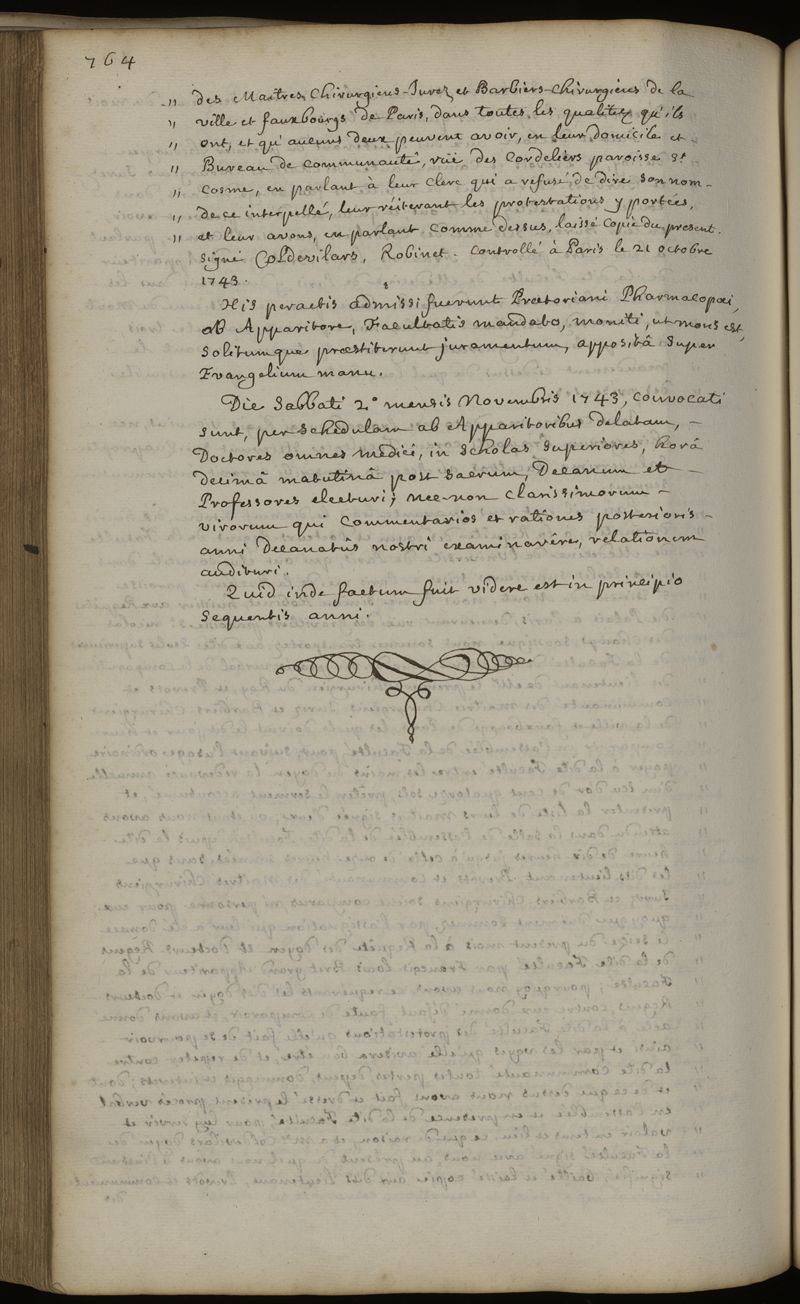 764
„ des Maitres Chirurgiens-Jurez et Barbiers-Chirurgiens de la
„ ville et fauxbourgs de Paris, dans toutes les qualitez qu'ils
„ ont, et qu'aucuns deux peuvent avoir, en leur domicile et
„ Bureau de communauté, rüe des Cordeliers paroisse St
„ Cosme, en parlant à leur Clerc qui a refusé de dire son nom
„ de ce interpellé, leur réiterant les protestations y portées,
„ et leur avons, en parlant comme dessus, laissé copie du present.
signé Col De vilars, Robinet. Controllé à Paris le 21 octobre
1743.
His peractis admissi fuerunt Prætoriani Pharmacopæi,
ab Apparitore, Facultatis mandato, moniti, ut moris est,
solitumque præstiterunt juramentum, appositâ super
Evangelium manu.
Die Sabbati 2° mensis Novembris 1743, convocati
sunt, per schedulam ab Apparitoribus delatam, –
Doctores omnes medici, in Scholas Superiores, horâ
decimâ matutinâ post sacrum, Decanum et –
Professores electuri; nec-non clarissimorum –
virorum qui Commentarios et rationes posterioris –
anni Decanatûs nostri examinavêre, relationem
audituri.
Quid inde factum fuit videre est in principio
sequentis anni.